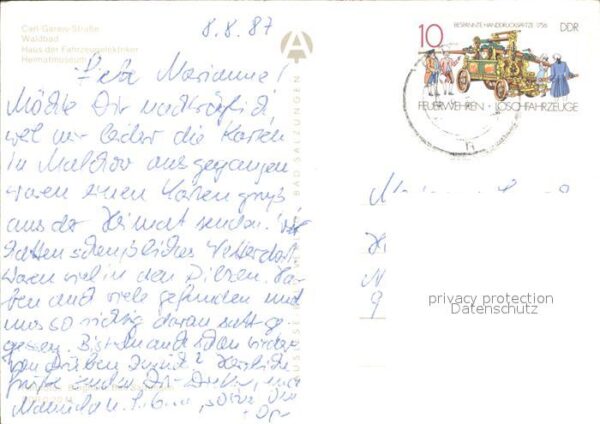 Carl-Gareis-Straße
Waldbad
Haus der Fahrzeugelektriker
Heimatmuseum
8.8.87
Liebe Marianne!
Möchte Dir nachträglich,
weil wir leider die Karten
in Malchow ausgegangen
waren einen Kartengruß
aus der Heimat senden! Wir
hatten scheußliches Wetter dort.
Waren viel in den Pilzen. Ha-
ben auch viele gefunden und
uns so richtig daran satt ge-
gessen. Bist Du auch schon wieder
von drüben zurück? Herzliche
Grüße senden Dir
BAD SALZUNGEN
10
BESPANNTE HANDDRUCKSPRITZE 1756
DDR
FEUERWEHREN · LÖSCHFAHRZEUGE
privacy protection
Datenschutz